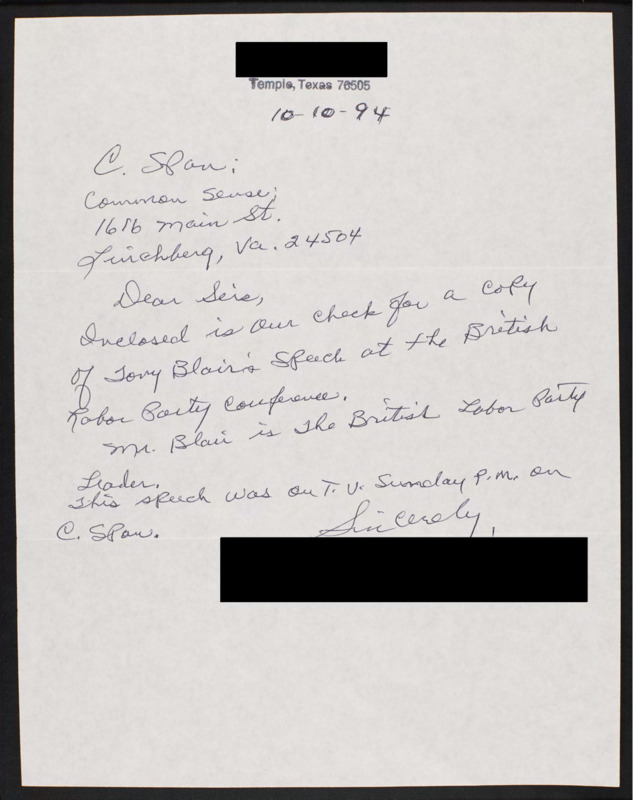 Temple, Texas 76505
10-10-94
C. Span;
Common Sense;
1616 main St.
Linchberg, Va. 24504
Dear Sirs,
Inclosed is our check for a copy
of Tony Blair's Speech at the British
Labor Party Conference.
Mr. Blair is The British Labor Party
Leader.
This speech was on T.V. Sunday P.M. on
C. Span.
Sincerely,